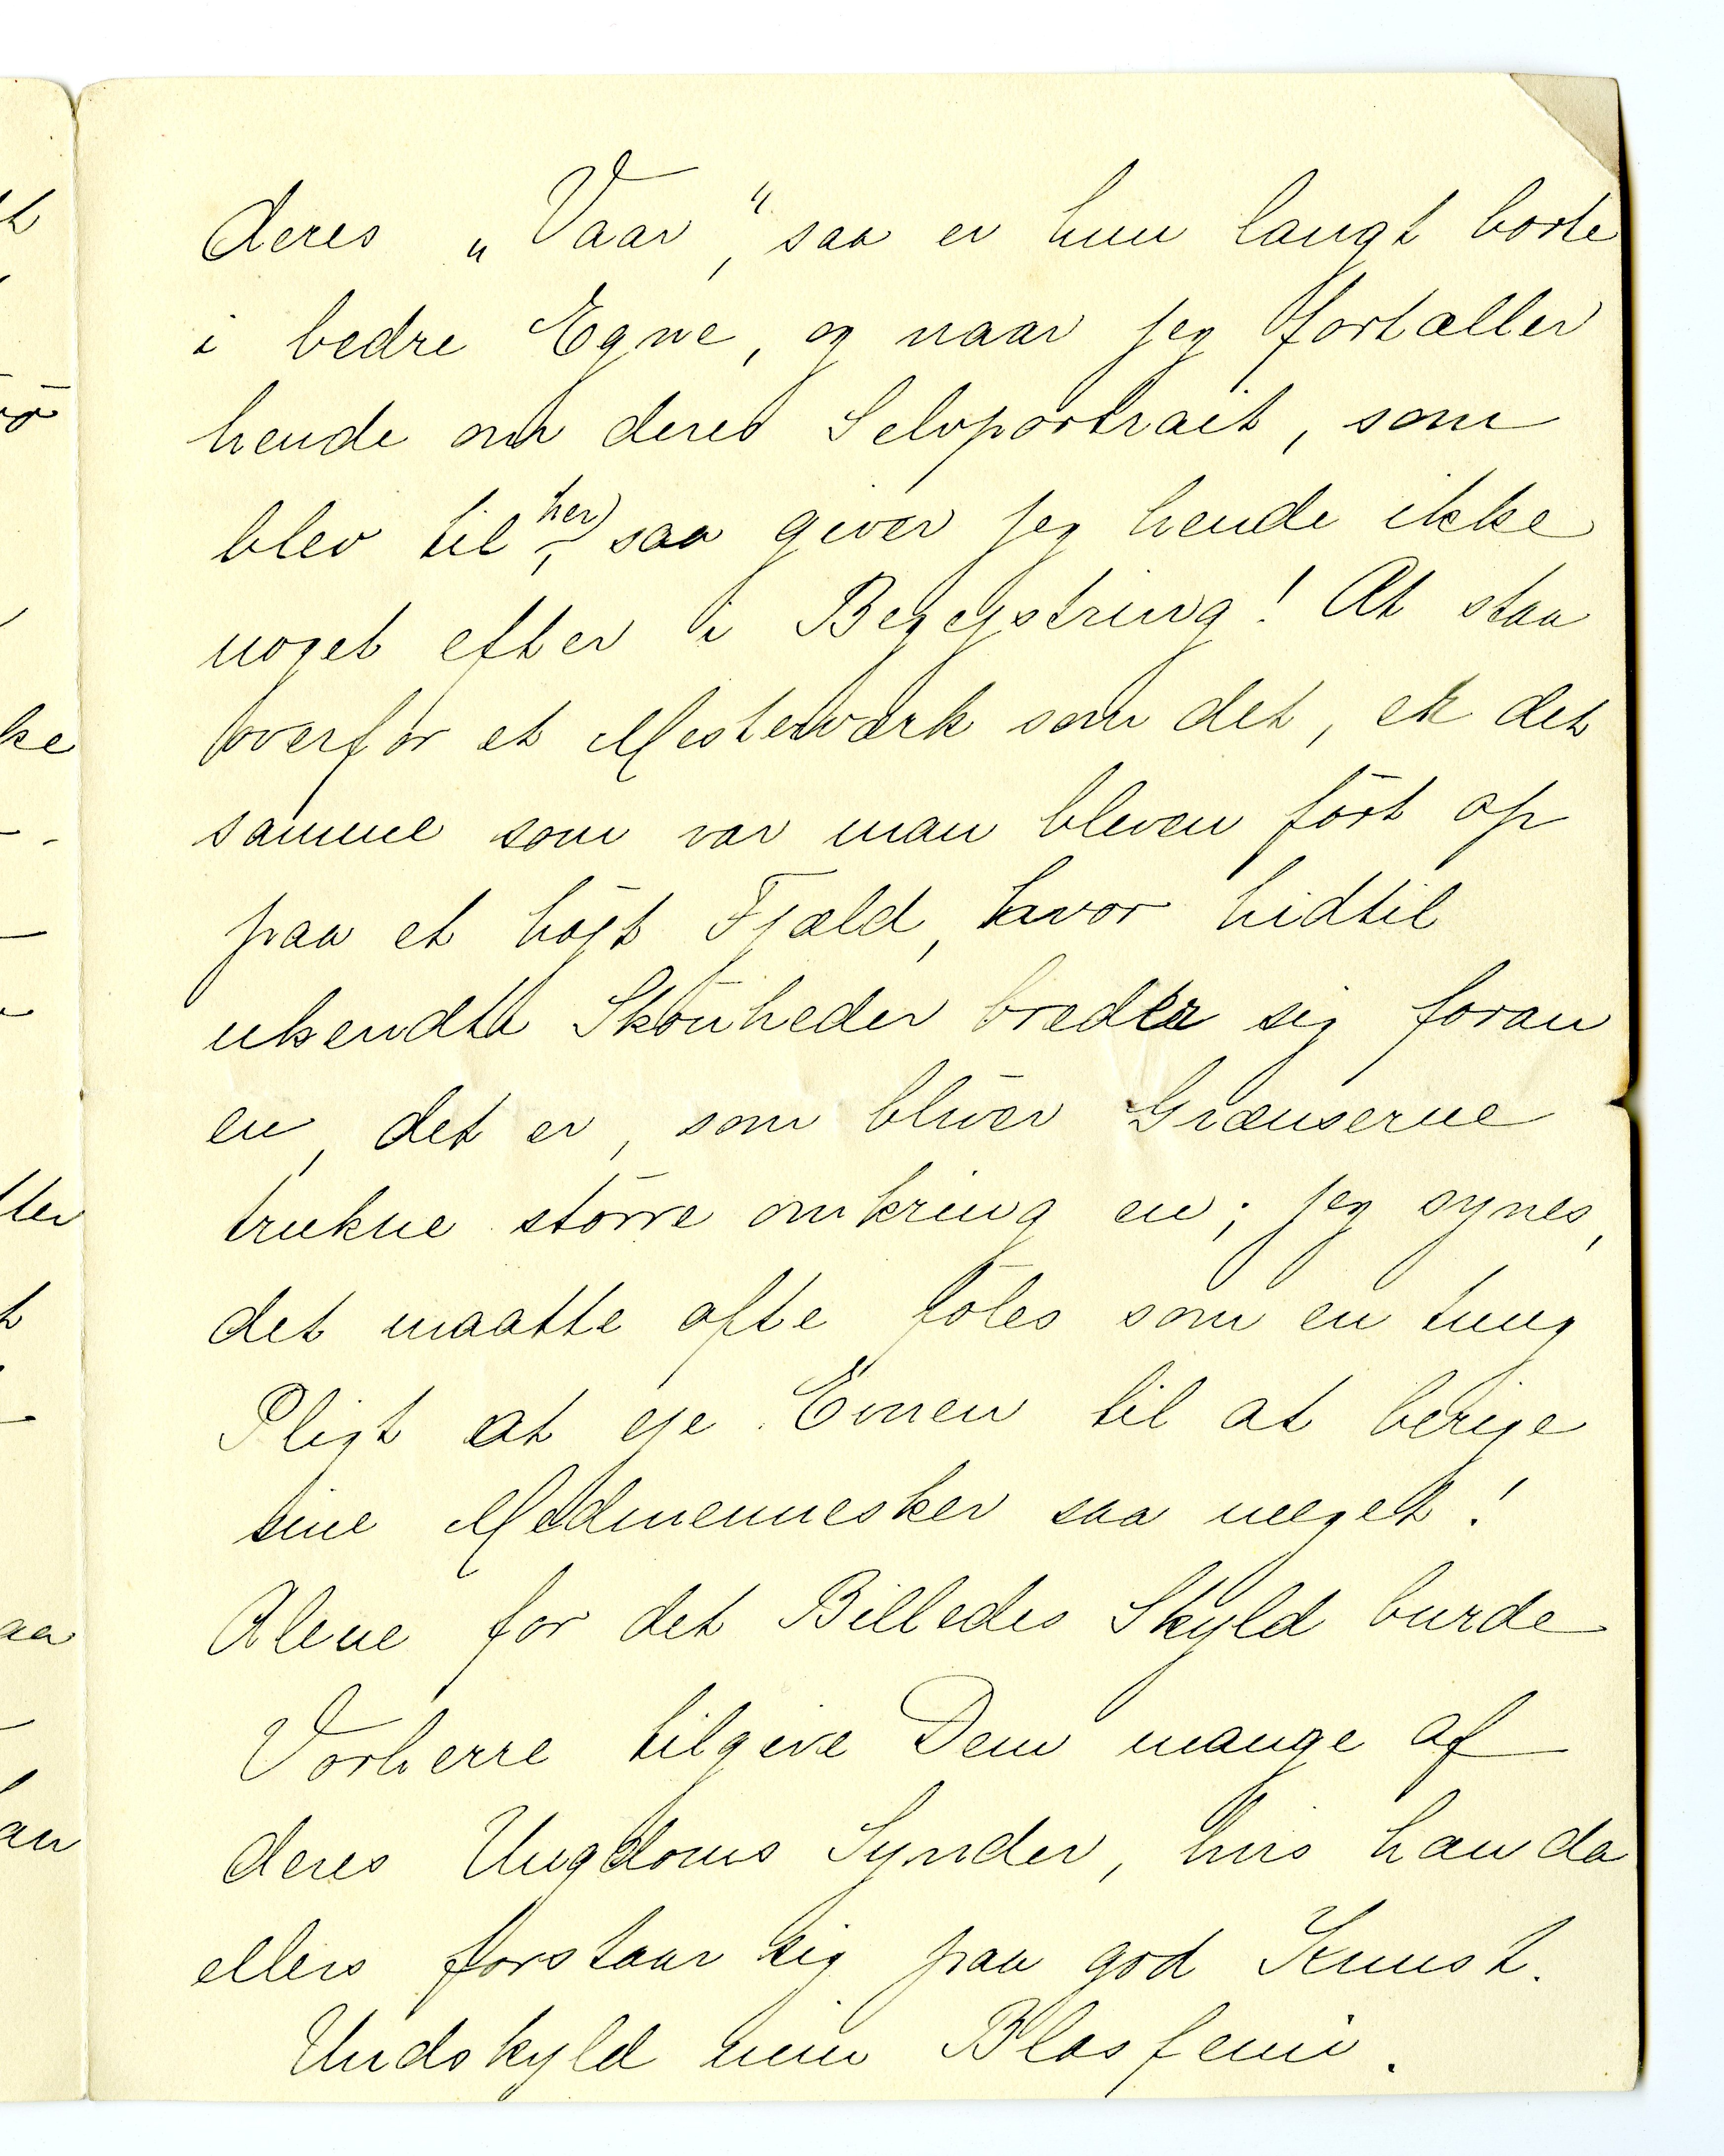 deres „Vaar“, saa er hun langt borte
i bedre Egne, og naar jeg fortæller
hende om deres Selvportrait, som
blev til her, saa giver jeg hende ikke
noget efter i Begejstring! At staa
overfor et Mesterværk som det, er det
samme som var man bleven ført op
paa et højt Fjæld, hvor hidtil
ukendte Skønheder breder sig foran
en, det er, som bliver Grænserne
trukne større omkring en; jeg synes,
det maatte ofte føles som en tung
Pligt at eje Evnen til at berige
sine Medmennesker saa meget!
Alene for det Billedes Skyld burde
Vorherre tilgive Dem mange af
deres Ungdoms Synder, hvis han da
ellers forstaar sig paa god Kunst.
Undskyld min Blasfemi.